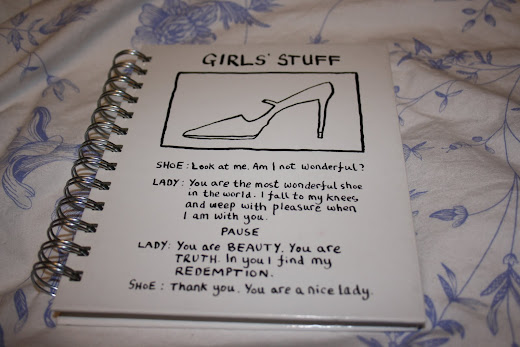 GIRLS' STUFF
SHOE: Look at me. Am I not wonderful?
LADY: You are the most wonderful shoe
in the world. I fall to my knees
and weep with pleasure when
I am with you.
PAUSE
LADY: You are BEAUTY. You are
TRUTH. In you I find my
REDEMPTION.
SHOE: Thank you. You are a nice lady.